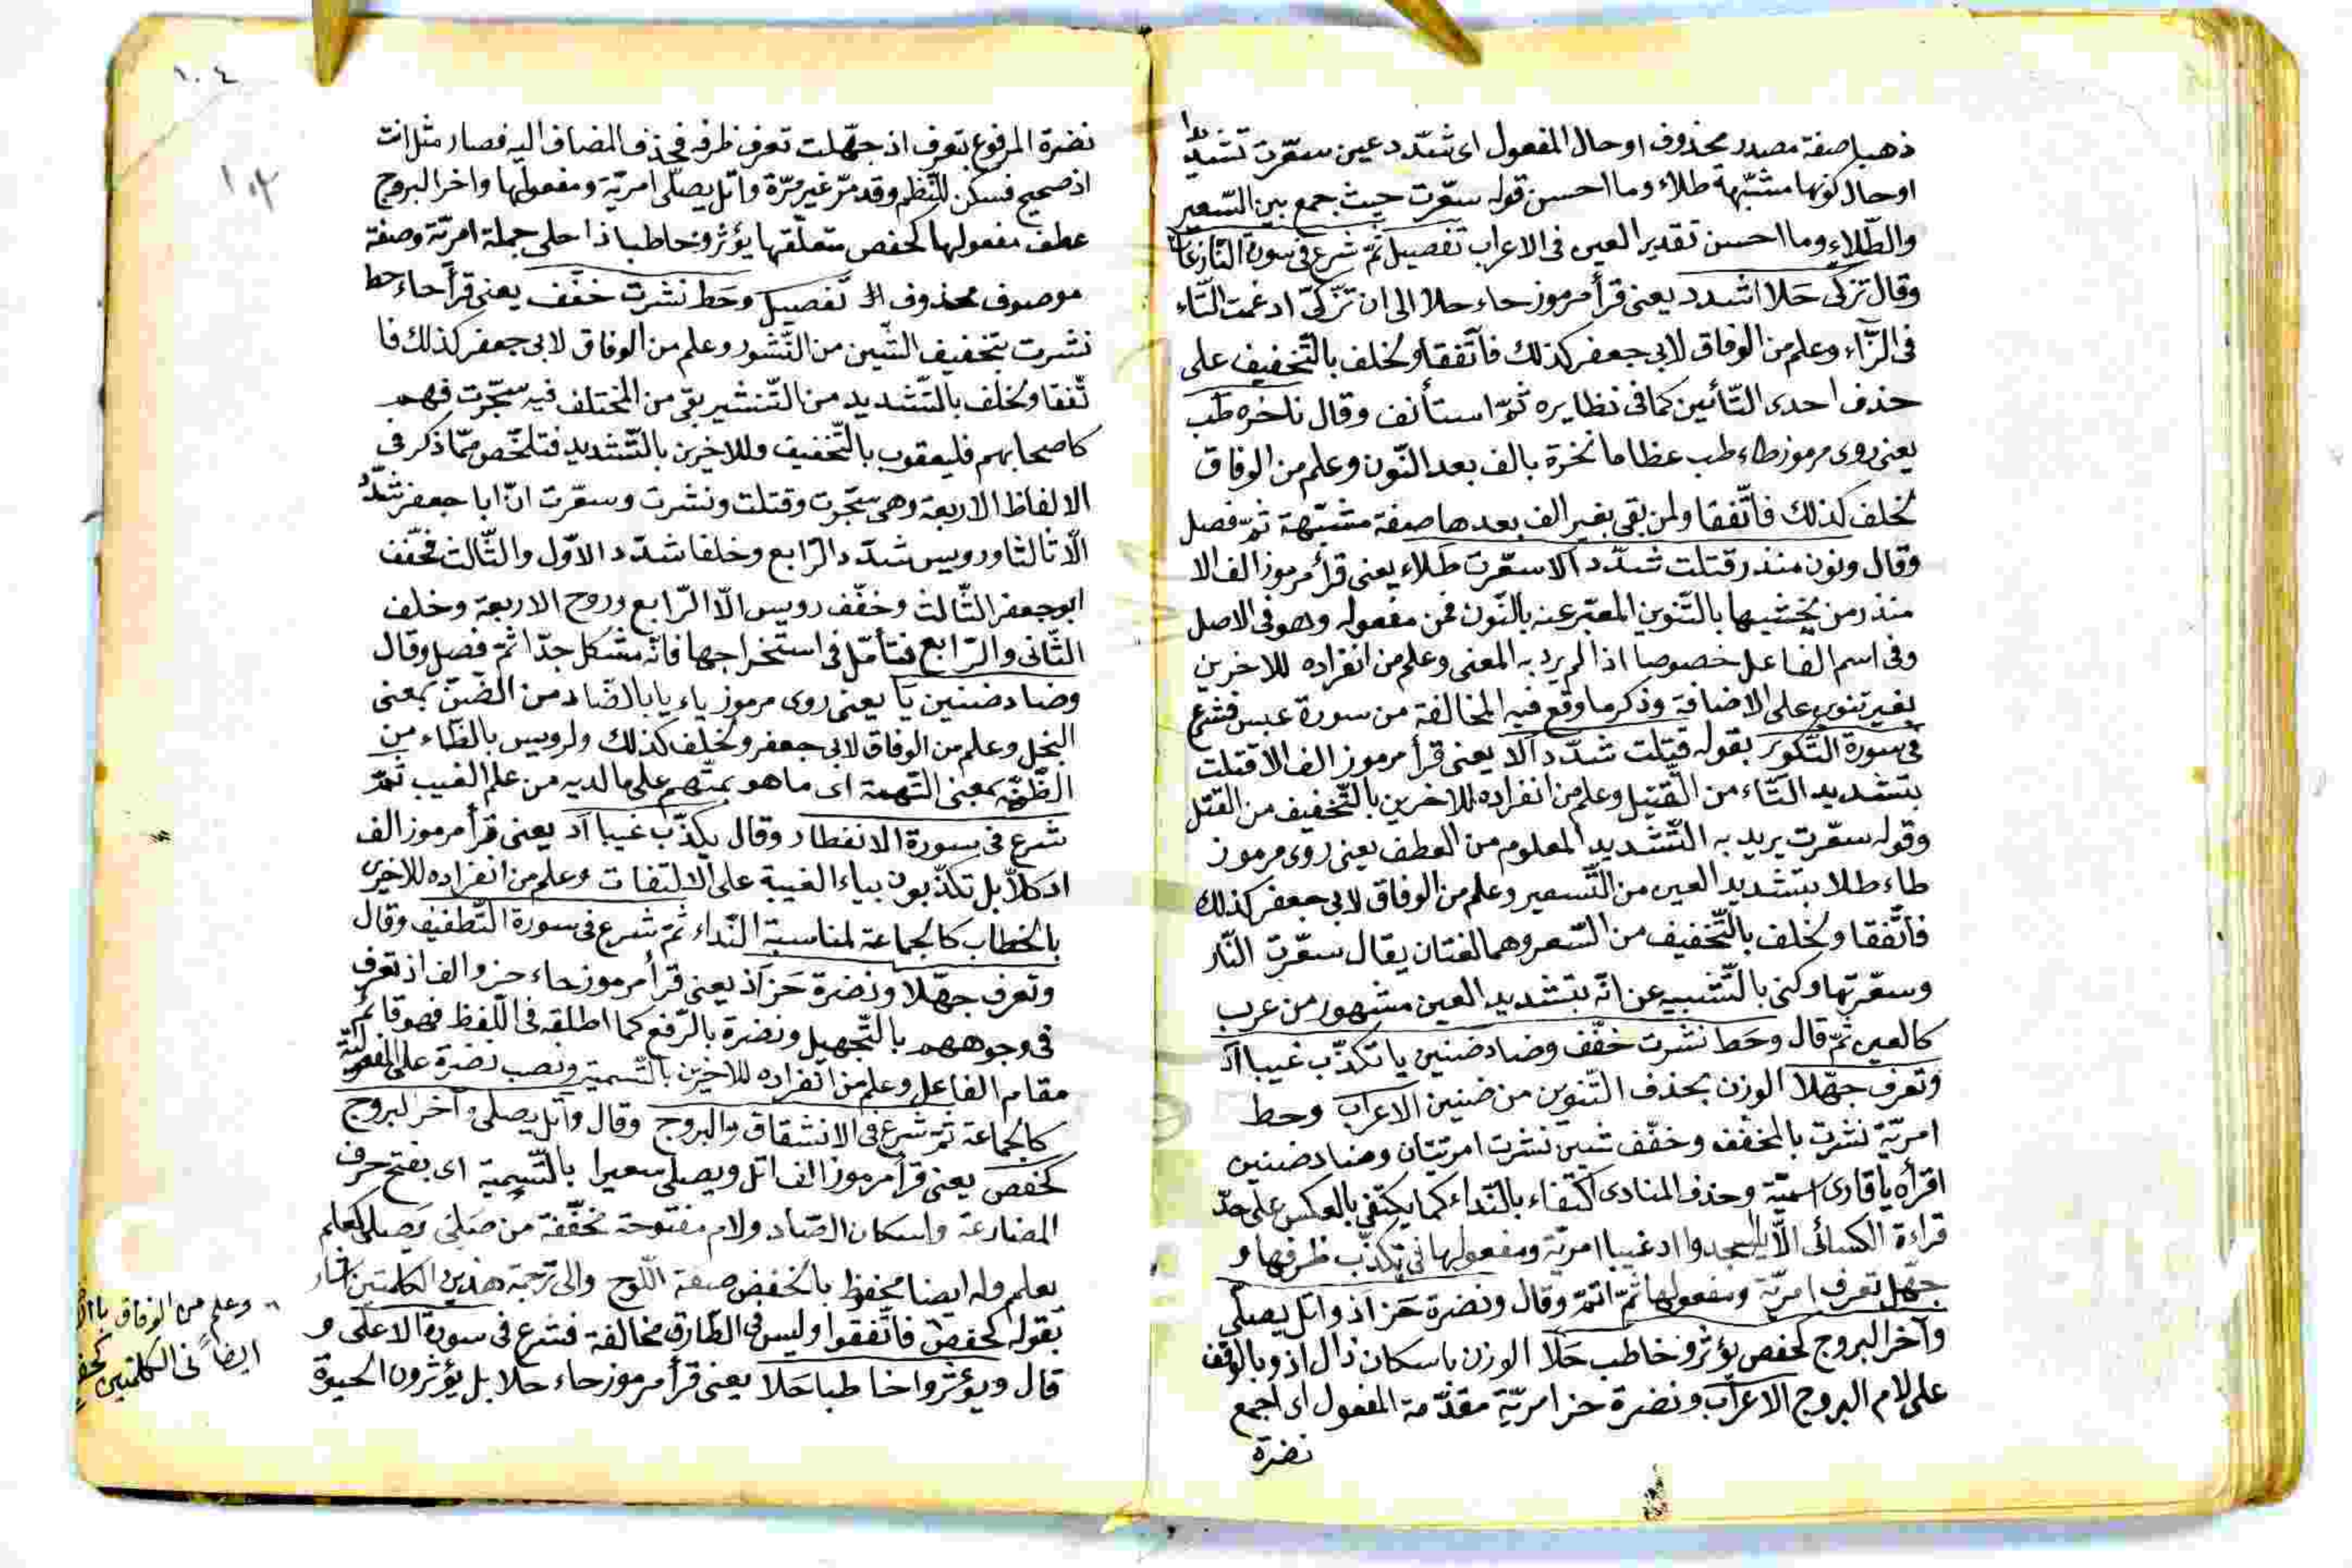 ذهبا صفة مصدر محذوف او حال المفعول اى شدّد عين سعّرت تشديدا
او حال كونها مشبّهة طلاء وما احسن قوله سعّرت حيث جمع بين السّعير
والطّلاء وما احسن تقدير العين فى الاعراب تفصيل ثمّ شرع فى سورة النّازعات
وقال تزكّى حَلا اشدد يعنى قرأ مرموز حاء حلا الى ان تزّكّى ادغمت التّاء
فى الزّاء وعلم من الوفاق لابى جعفر كذلك فاتّفقا ولخلف بالتّخفيف على
حذف احدى التّائين كما فى نظايره ثمّ استأنف وقال ناخره طب
يعنى روى مرموز طاء طب عظاما نخرة بالف بعد النّون وعلم من الوفاق
لخلف كذلك فاتّفقا ولمن بقى بغير الف بعدها صفة مشبّهة ثمّ فصل
وقال ونون منذر قتلت شدّد الا سعّرت طلاء يعنى قرأ مرموز الف الا
منذر من يخشيها بالتّنوين المعبّر عنه بالنّون فمن مفعوله وهو فى الاصل
وفى اسم الفاعل خصوصا اذا لم يرد به المعنى وعلم من انفراده للاخرين
بغير تنوين على الاضافة وذكر ما وقع فيه المخالفة من سورة عبس فشرع
فى سورة التّكوير بقوله قتّلت شدّد الا يعنى قرأ مرموز الف الا قتلت
بتشديد التّاء من القتيل وعلم من انفراده للاخرين بالتّخفيف من القتل
وقوله سعّرت يريد به التّشديد المعلوم من العطف يعنى روى مرموز
طاء طلا بتشديد العين من التّسعير وعلم من الوفاق لابى جعفر كذلك
فاتّفقا ولخلف بالتّخفيف من السّعر وهما لغتان يقال سعّرت النّار
وسعّرتها وكنى بالتّشبيه عن انّه بتشديد العين مشهور من عرب
كالعين ثمّ قال وحَط نشرت خفّف وضاد ضنين يا تكذّب غيبا اد
وتعرف جهّلا الوزن بحذف التّنوين من ضنين الاعراب وحط
امريّة نشرت بالمخفّف وخفّف شين نشرت امريّتان وضاد ضنين
اقرأه يا قارى اسميّة وحذف المنادى اكتفاء بالنّداء كما يكتفى بالعكس على حدّ
قراءة الكسائى الّا يا اسجدوا اد غيبا امريّة ومفعولها فى تكذّب ظرفها و
جهّل تعرف امريّة ومفعولها ثمّ اتمّ وقال ونضرة حَز اذ واتل يصلّى
وآخر البروج كحفص يؤثرو خاطب حَلا الوزن باسكان ذال اذ وبالوقف
على لام البروج الاعراب ونضرة حز امريّة مقدّمة المفعول اى اجمع
نضرة
١٠٤
نضرة المرفوع بتعرف اذ جهّلت تعرف ظرفه فحذف المضاف اليه فصار مثل انت
اذ صحيح فسكن للنّظم وقد مرّ غير مرّة واتل يصلّى امريّة ومفعولها واخر البروج
عطف مفعولها كحفص متعلّقها يؤثرو خاطبا ذا حلى جملة امريّة وصفة
موصوف محذوف تفصيل وحَط نشرت خفّف يعنى قرأ حاء حط
نشرت بتخفيف الشّين من النّشور وعلم من الوفاق لابى جعفر كذلك فا
تّفقا ولخلف بالتّشديد من التّنشير بقى من المختلف فيه سجّرت فهم
كاصحابهم فليعقوب بالتّخفيف وللاخرين بالتّشديد فتلخّص ممّا ذكر فى
الالفاظ الاربعة وهى سجّرت وقتلت ونشرت وسعّرت انّ ابا جعفر شدّد
الّا ثالثا ورويس شدّد الرّابع وخلفا شدّد الاوّل والثّالث فخفّف
ابو جعفر الثّالث وخفّف رويس الّا الرّابع وروح الاربعة وخلف
الثّانى والرّابع فتأمّل فى استخراجها فانّه مشكل جدّا ثمّ فصل وقال
وضاد ضنين يا يعنى روى مرموز ياء يا بالضّاد من الضّنّ بمعنى
البخل وعلم من الوفاق لابى جعفر ولخلف كذلك ولرويس بالظّاء من
الظّنّة بمعنى التّهمة اى ما هو بمتّهم على ما لديه من علم الغيب ثمّ
شرع فى سورة الانفطار وقال يكذّب غيبا اد يعنى قرأ مرموز الف
اد كلّا بل تكذّبون بياء الغيبة على الالتفات وعلم من انفراده للاخرى
بالخطاب كالجماعة لمناسبة النّداء ثمّ شرع فى سورة التّطفيف وقال
وتعرف جهّلا ونضرة حَز اذ يعنى قرأ مرموز حاء حز والف اذ تعرف
فى وجوههم بالتّجهيل ونضرة بالرّفع كما اطلقه فى اللّفظ فهو قائم
مقام الفاعل وعلم من انفراده للاخرين بالتّسمية ونصب نضرة على المفعوليّة
كالجماعة ثمّ شرع فى الانشقاق والبروج وقال واتل يصلى وآخر البروج
كحفص يعنى قرأ مرموز الف اتل ويصلى سعيرا بالتّسمية اى بفتح حرف
المضارعة واسكان الصّاد ولام مفتوحة مخفّفة من صَلِىَ يَصلى كعلم
يعلم وله ايضا محفوظ بالخفض صفة اللّوح والى ترجمة هذين الكلمتين اشار
بقوله كحفص فاتّفقوا وليس فى الطّارق مخالفة فشرع فى سورة الاعلى و
قال ويؤثروا خاطبا حَلا يعنى قرأ مرموز حاء حلا بل يؤثرون الحيوة
وعلم من الوفاق
ايضاً فى الكلمتين